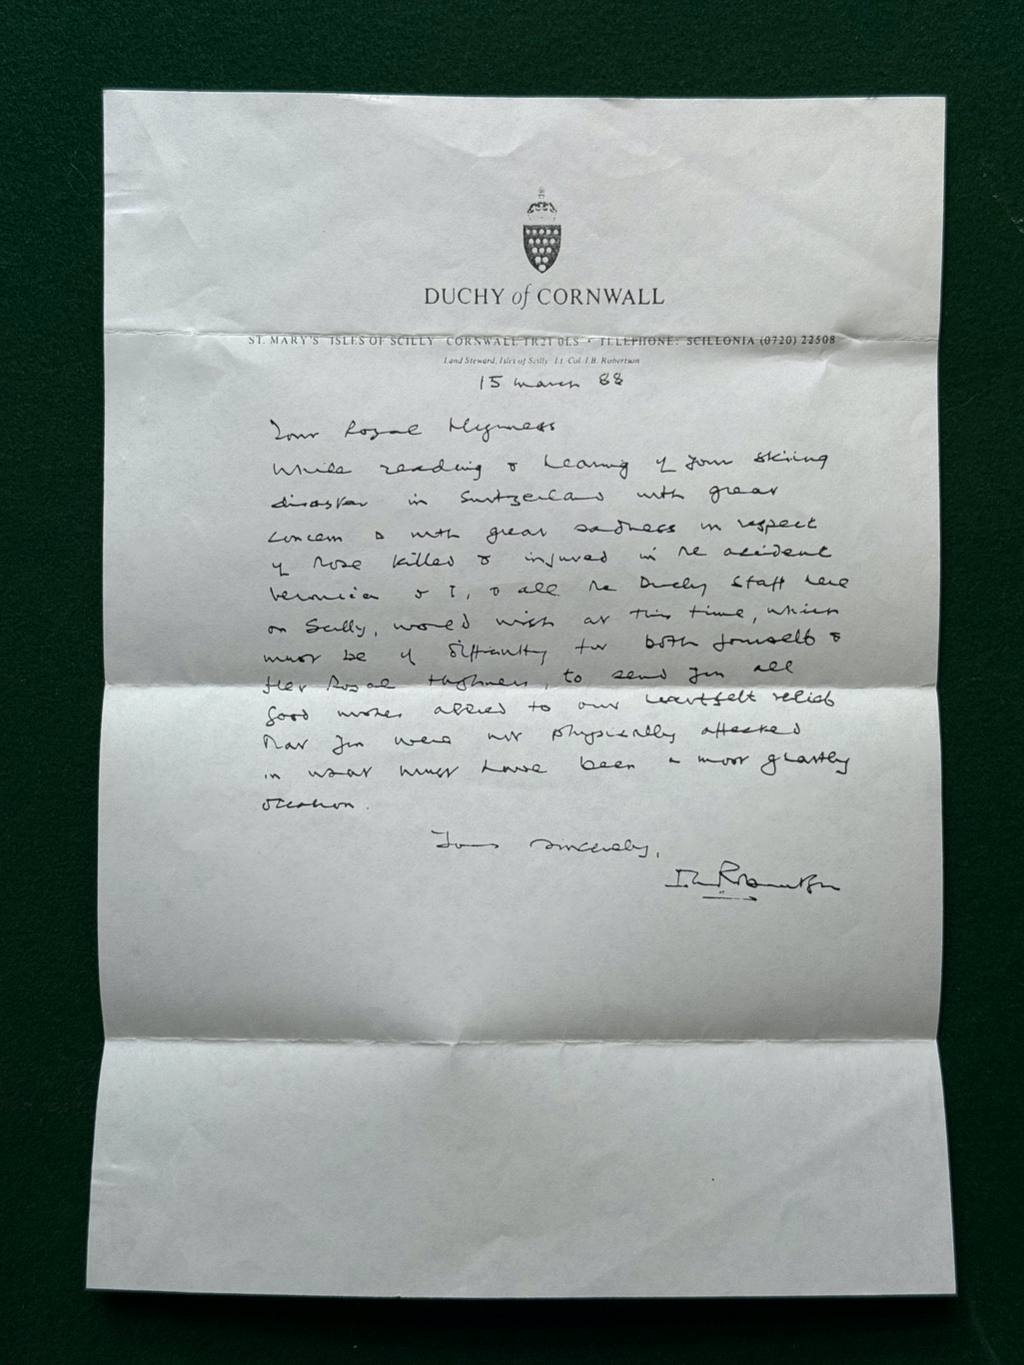 DUCHY of CORNWALL
ST. MARY'S ISLES OF SCILLY CORNWALL TR21 0LS • TELEPHONE: SCILLONIA (0720) 22508
Land Steward, Isles of Scilly Lt. Col. I.B. Robertson
15 March 88
Your Royal Highness
While reading & hearing of your skiing
disaster in Switzerland with great
concern & with great sadness in respect
of those killed & injured in the accident
Veronica & I, & all the Duchy Staff here
on Scilly, would wish at this time, which
must be of difficulty for both yourself &
Her Royal Highness, to send you all
good wishes allied to our heartfelt relief
that you were not physically affected
in what must have been a most ghastly
situation.
Yours sincerely,
Robertson